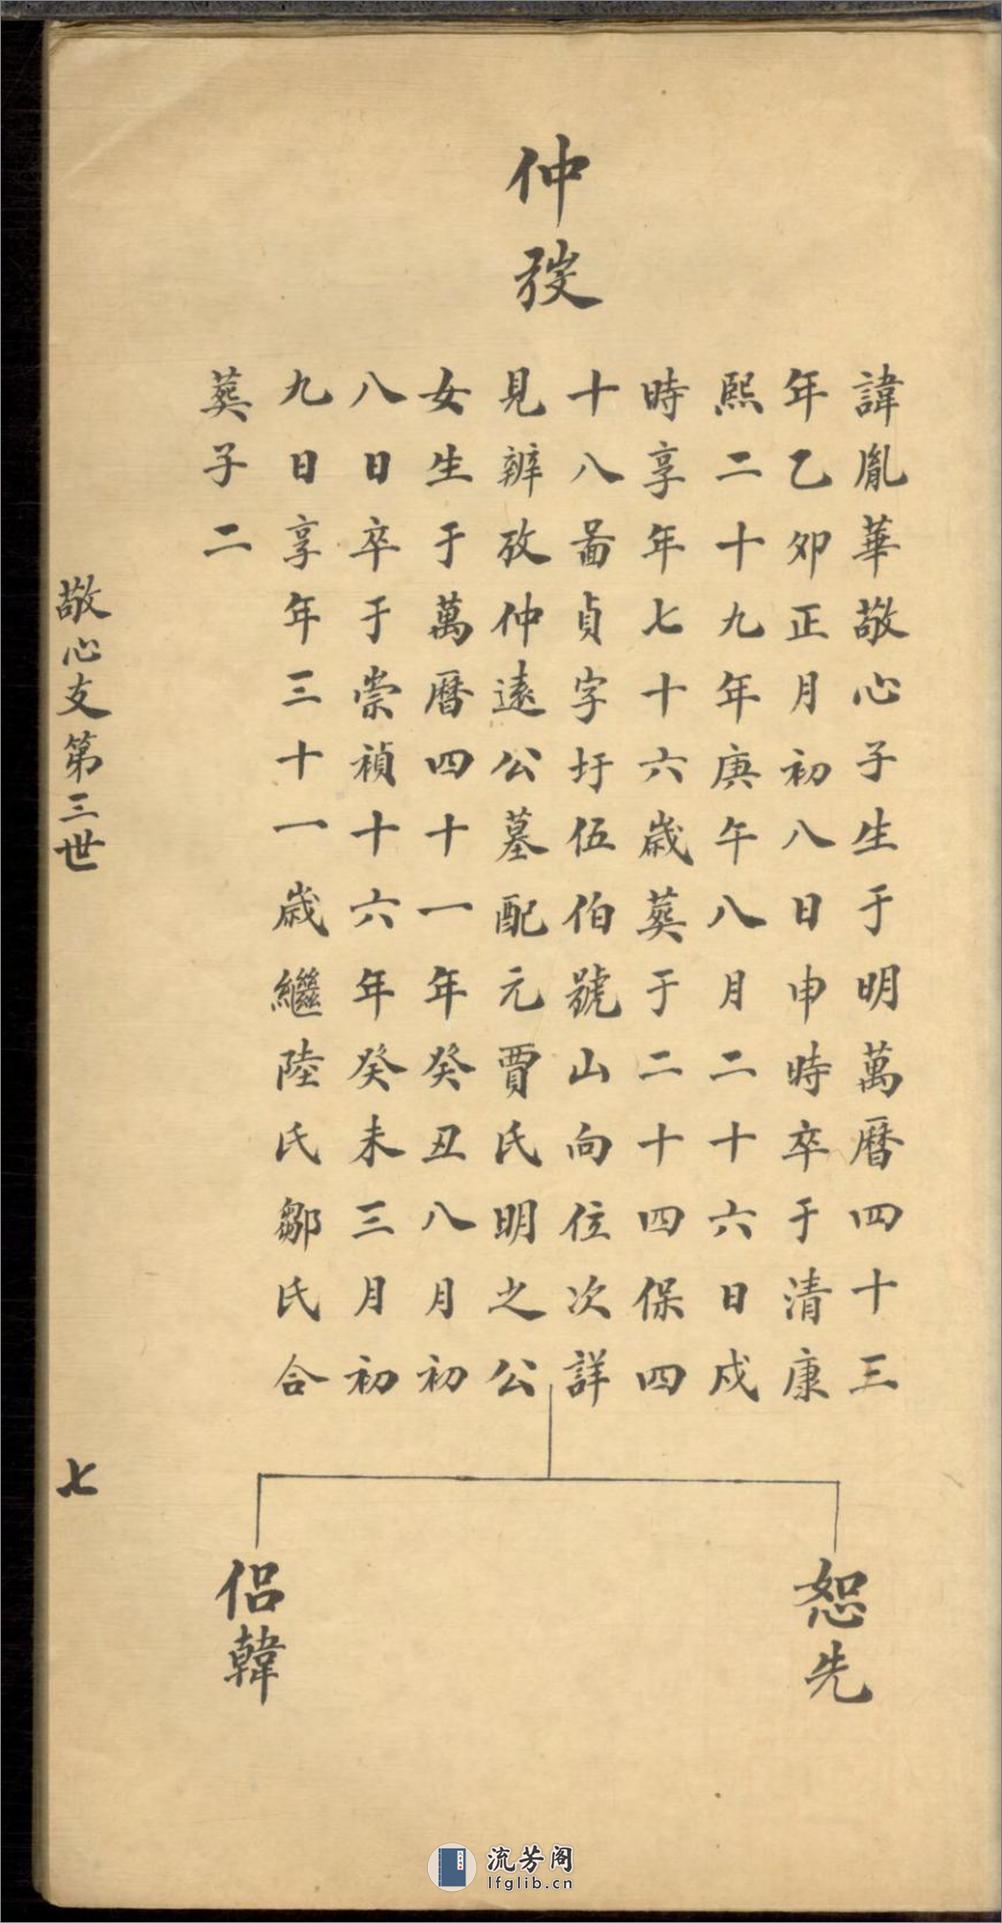 仲
諱胤華敬心子生于明萬曆四十三
年乙卯正月初八日申時卒于清康
熙二十九年庚午八月二十六日戌
時享年七十六歲葬于二十四保四
十八啚貞字圩伍伯號山向位次詳
見辨攷仲遠公墓配元賈氏明之公
女生于萬曆四十一年癸丑八月初
八日卒于崇禎十六年癸未三月初
九日享年三十一歲繼陸氏鄒氏合
葬子二
恕先
侶韓
敬心支第三世
七
流芳阁
lfglib.cn